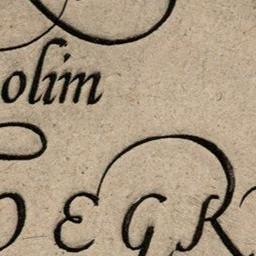 olim
EGR